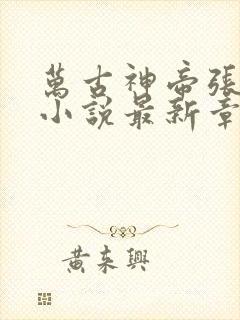 萬古神帝張
小說最新章
黃來興